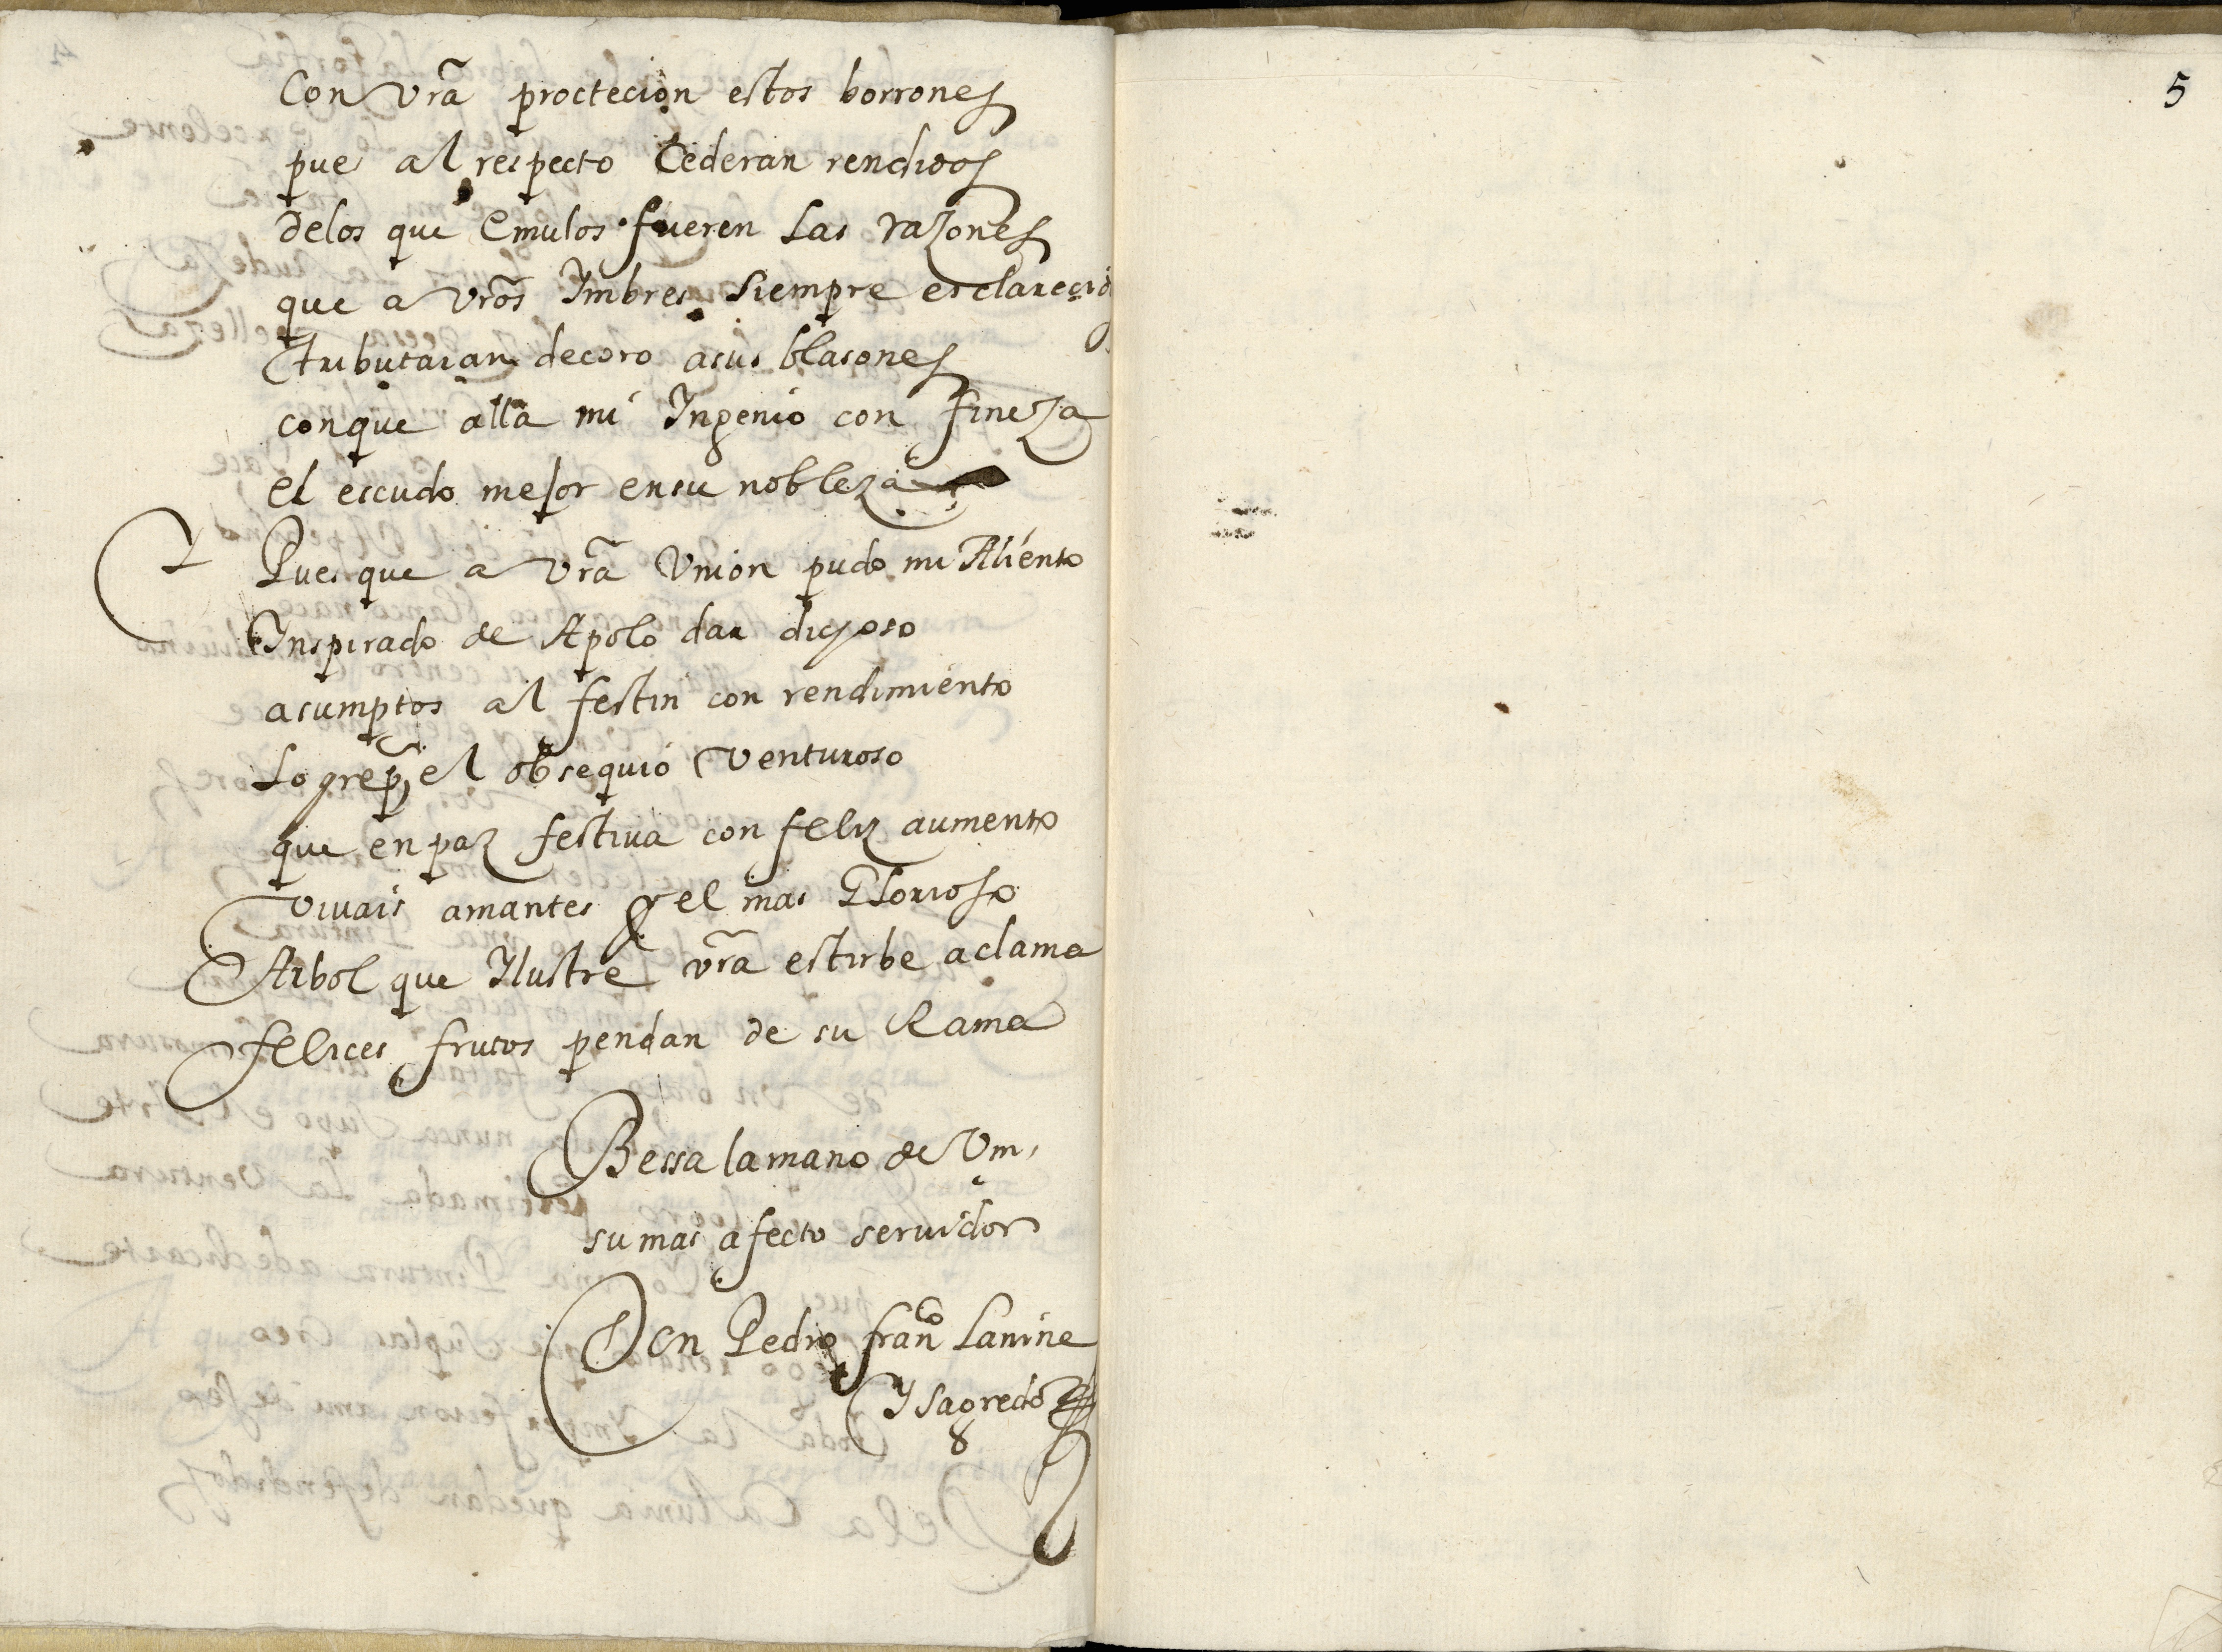 Con vrã procteción estos borrones
pues al respecto Cederan rendidos
delos que Emulos fueren Las razones
que a vrõs Tmbres siempre esclarecid
tributaran decoro asus blasones
conque alla mi Ingenio con fineza
el escudo mejor ensu nobleza
Pues que a vrã Vnion pudo mi Aliento
Inspirado de Apolo dar dichoso
asumptos al festin con rendimiento
Logre el obsequio venturoso
que en paz festiua con feliz aumento
viuais amantes y el mas Glorioso
Arbol que Ilustre vrã estirbe aclama
felices frutos pendan de su Rama
Bessa lamano de Vm,
su mas afecto seruidor
Don Pedro franco Lanine
Y Sagredo
5